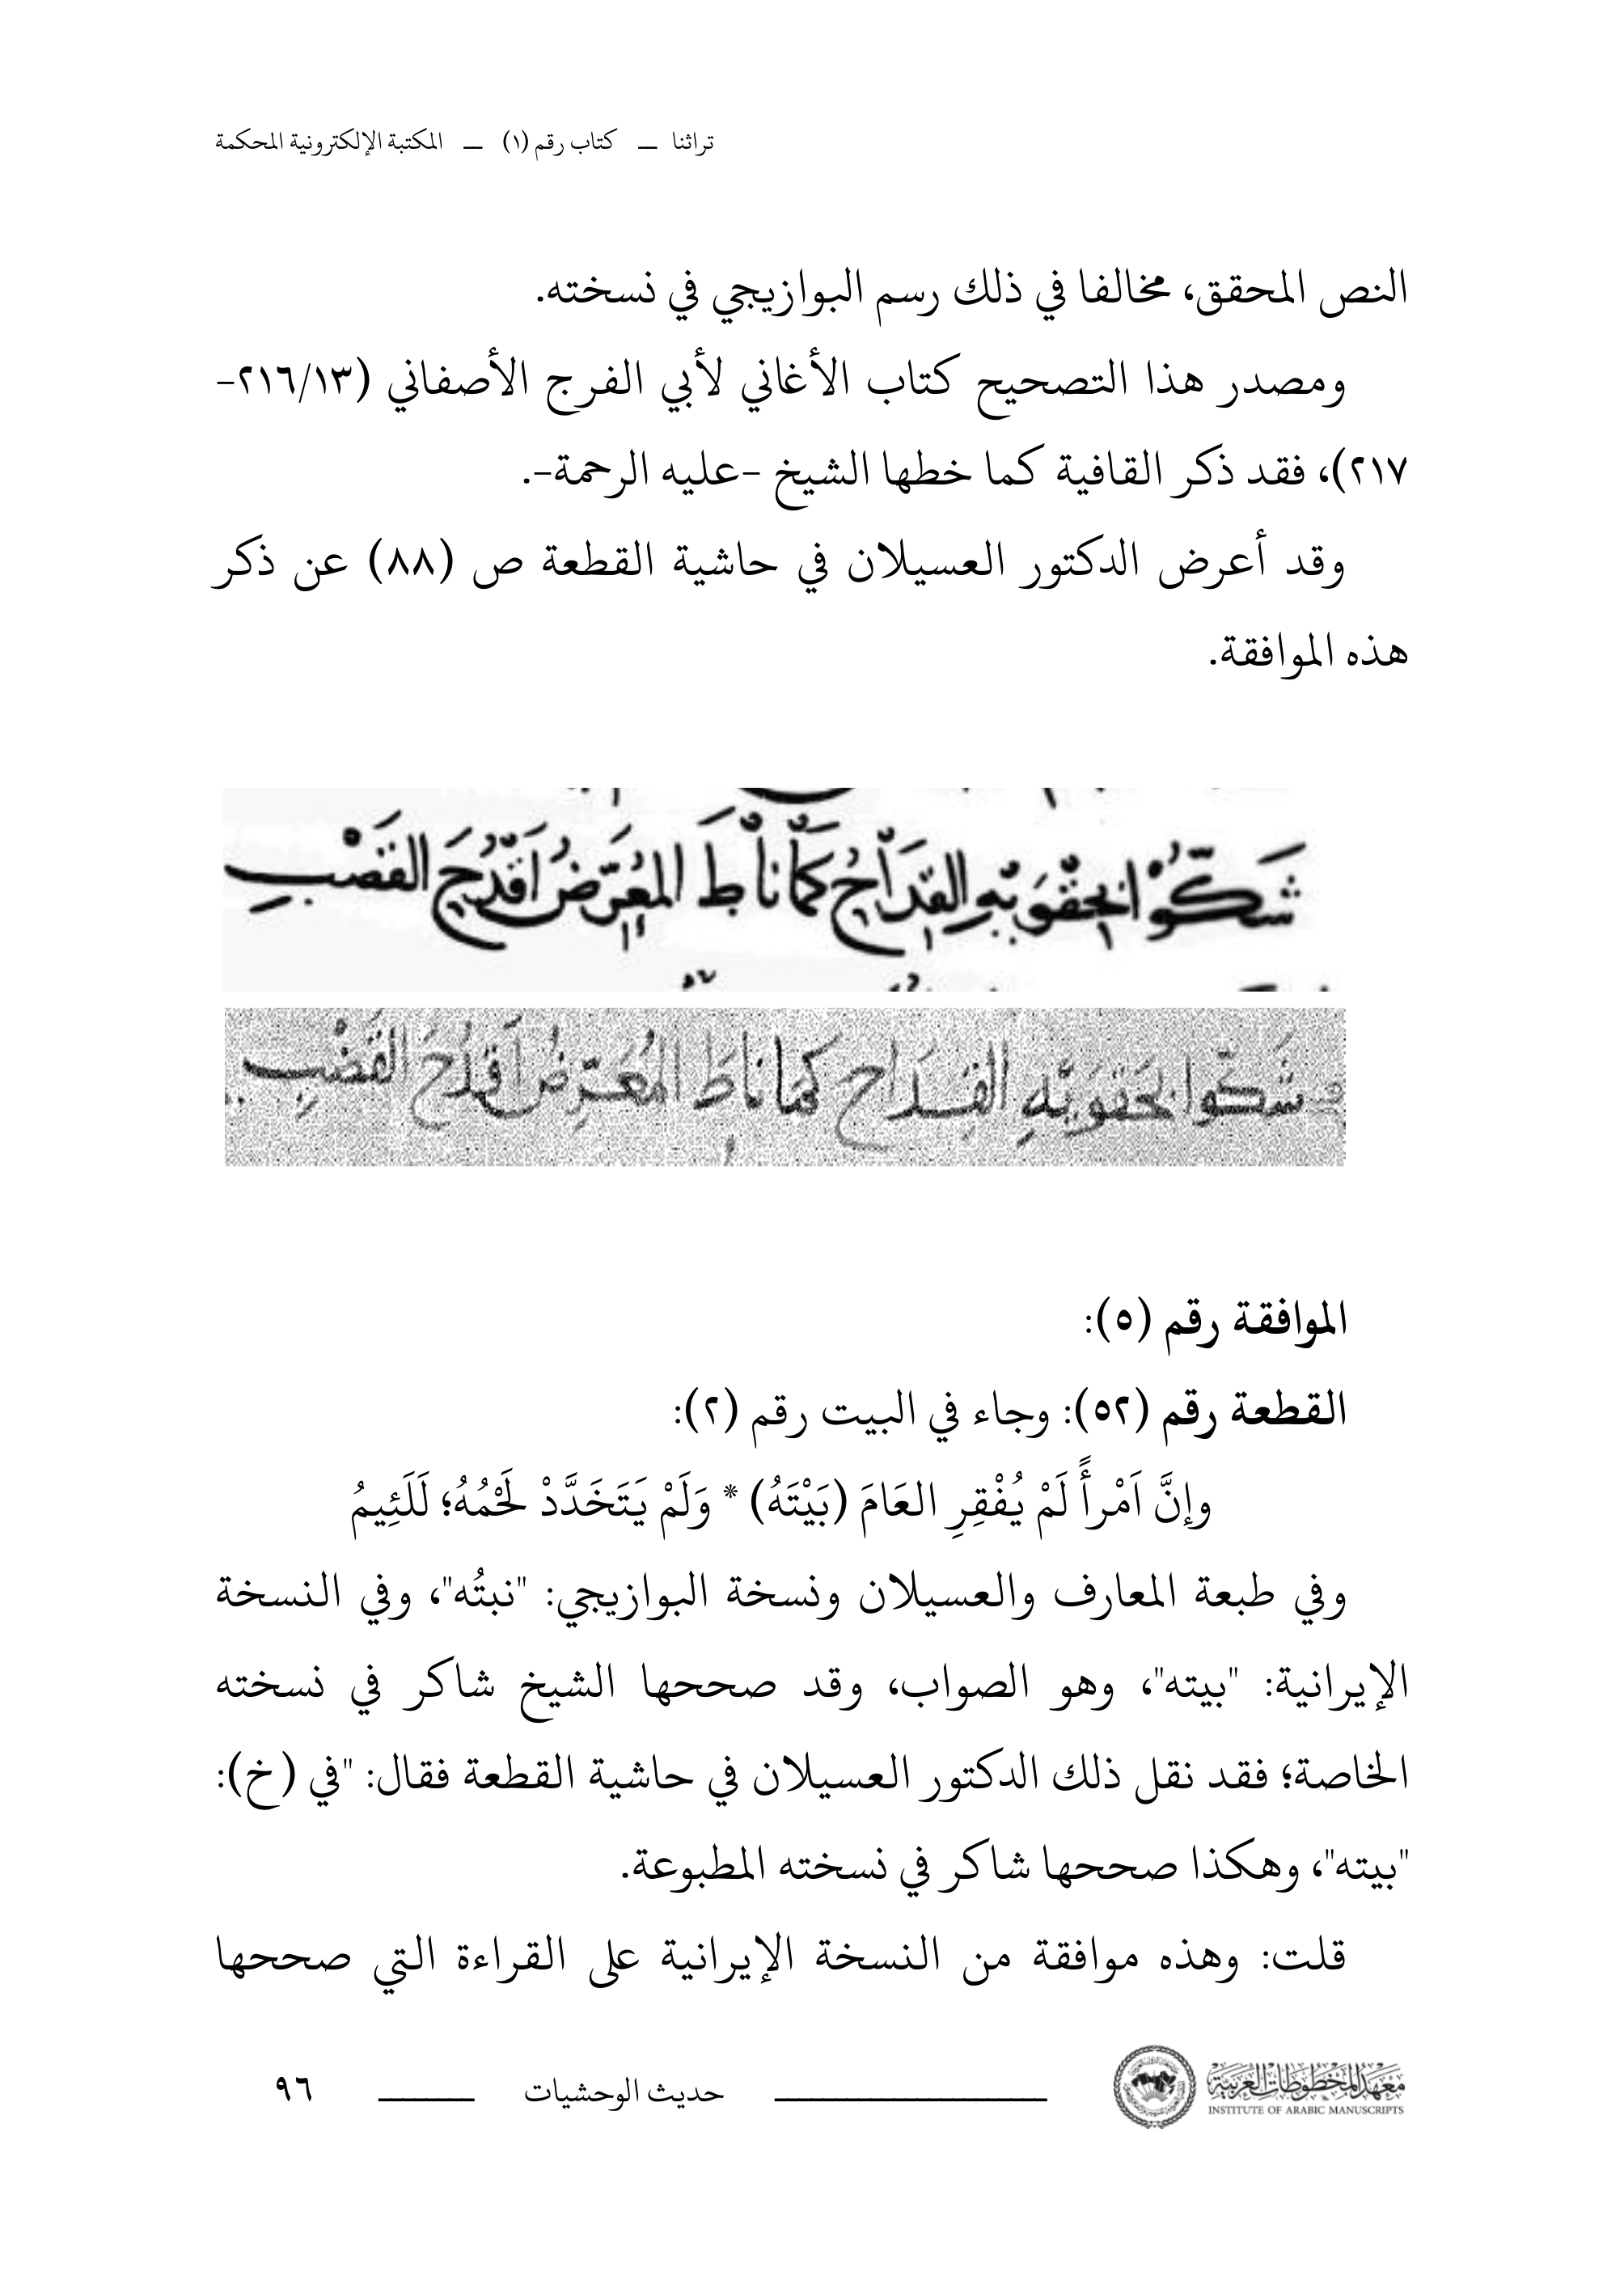 تراثنا — كتاب رقم (١) — المكتبة الإلكترونية المحكمة
النص المحقق، مخالفا في ذلك رسم البوازيجي في نسخته.
ومصدر هذا التصحيح كتاب الأغاني لأبي الفرج الأصفاني (٢١٦/١٣-
٢١٧)، فقد ذكر القافية كما خطها الشيخ -عليه الرحمة-.
وقد أعرض الدكتور العسيلان في حاشية القطعة ص (٨٨) عن ذكر
هذه الموافقة.
شَكّوا بحقويه القِداح كما ناط المعرّض اقدح القضب
شكّوا بحقويه القداح كما ناط المعرّض اقدح القضب
الموافقة رقم (٥):
القطعة رقم (٥٢): وجاء في البيت رقم (٢):
وإنَّ اَمْرأً لَمْ يُفْقِرِ العَامَ (بَيْتَهُ) * وَلَمْ يَتَخَدَّدْ لَحْمُهُ؛ لَلَئِيمُ
وفي طبعة المعارف والعسيلان ونسخة البوازيجي: "نبتُه"، وفي النسخة
الإيرانية: "بيته"، وهو الصواب، وقد صححها الشيخ شاكر في نسخته
الخاصة؛ فقد نقل ذلك الدكتور العسيلان في حاشية القطعة فقال: "في (خ):
"بيته"، وهكذا صححها شاكر في نسخته المطبوعة.
قلت: وهذه موافقة من النسخة الإيرانية على القراءة التي صححها
معهد المخطوطات العربية
INSTITUTE OF ARABIC MANUSCRIPTS
حديث الوحشيات
٩٦